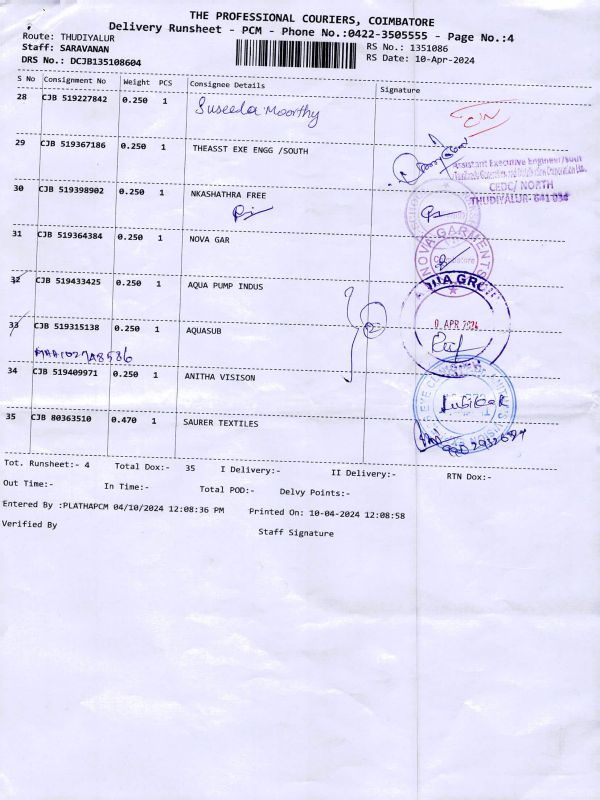 THE PROFESSIONAL COURIERS, COIMBATORE
Delivery Runsheet - PCM - Phone No.:0422-3505555 - Page No.:4
Route: THUDIYALUR
RS No.: 1351086
Staff: SARAVANAN
RS Date: 10-Apr-2024
DRS No.: DCJB135108604
S No Consignment No Weight PCS Consignee Details Signature
28 CJB 519227842 0.250 1 Suseeda Moorthy
29 CJB 519367186 0.250 1 THEASST EXE ENGG /SOUTH
Assistant Executive Engineer/
CEDC/ NORTH
THUDIYALUR- 641 034
30 CJB 519398902 0.250 1 NKASHATHRA FREE
31 CJB 519364384 0.250 1 NOVA GAR
NOVA GARMENTS
Coimbatore
32 CJB 519433425 0.250 1 AQUA PUMP INDUS
33 CJB 519315138 0.250 1 AQUASUB
APR 2024
34 CJB 519409971 0.250 1 ANITHA VISISON
35 CJB 80363510 0.470 1 SAURER TEXTILES
Tot. Runsheet:- 4 Total Dox:- 35 I Delivery:- II Delivery:- RTN Dox:-
Out Time:- In Time:- Total POD:- Delvy Points:-
Entered By :PLATHAPCM 04/10/2024 12:08:36 PM Printed On: 10-04-2024 12:08:58
Verified By Staff Signature